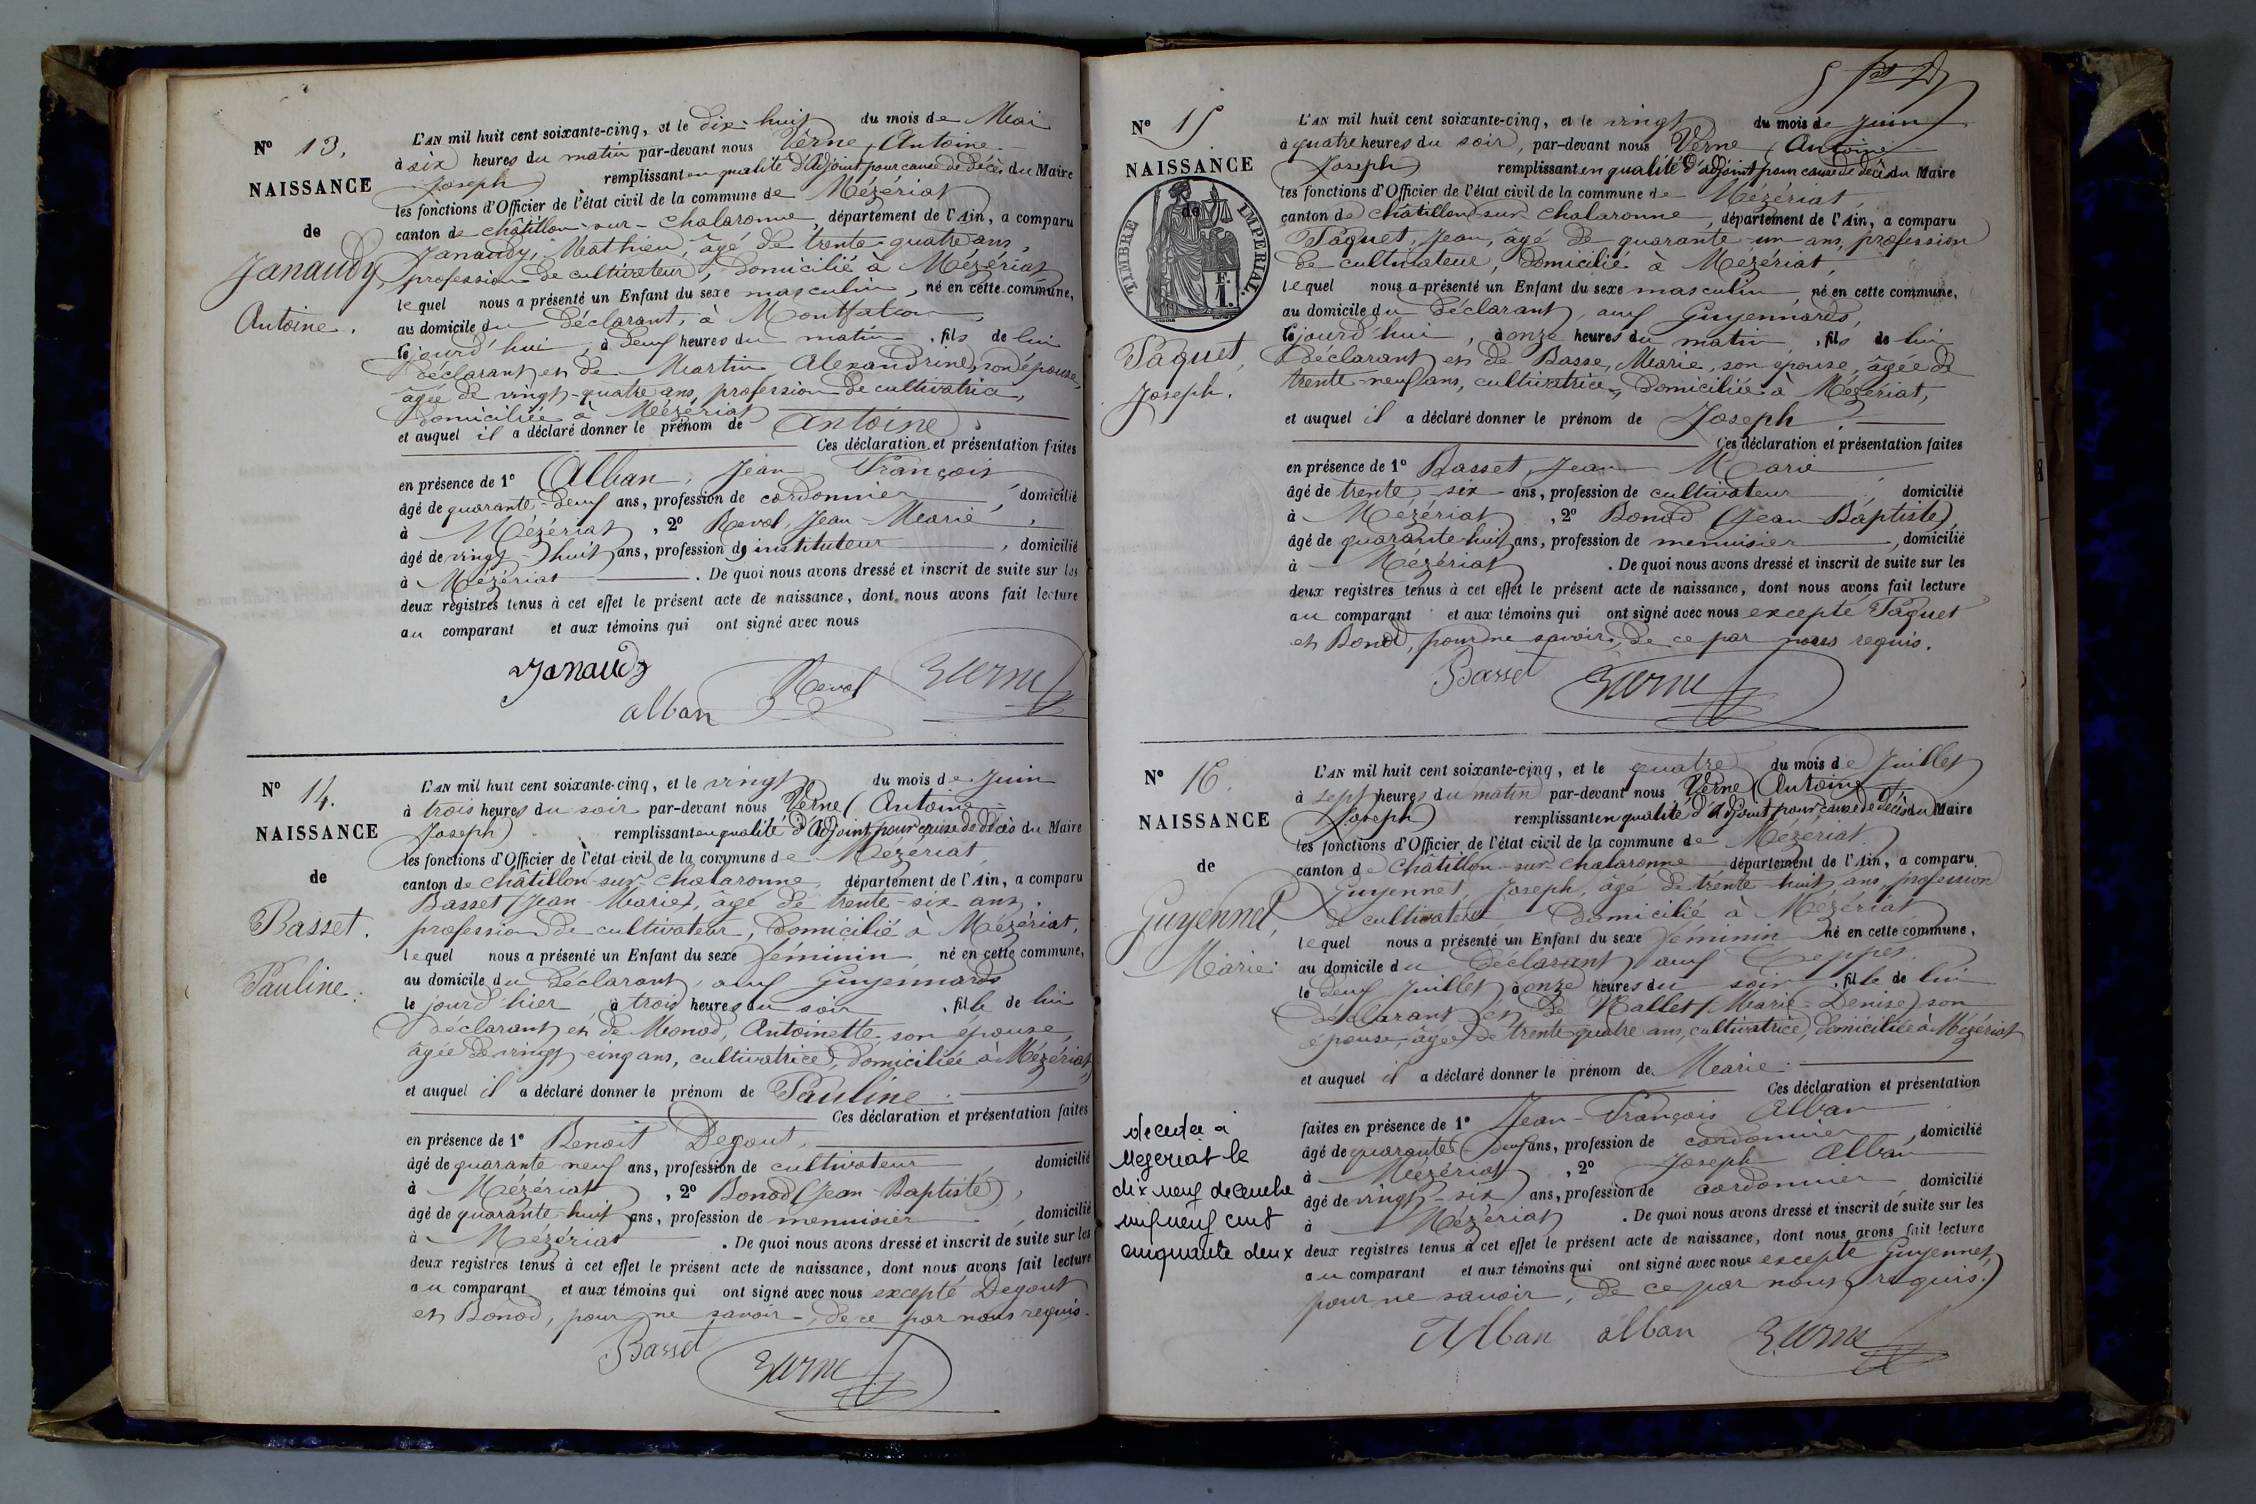 Nº 13.
NAISSANCE
de
Janaudy
Antoine.
L'AN mil huit cent soixante-cinq, et le dix-huit du mois de Mai
à six heures du matin par-devant nous Verne, Antoine
Joseph) remplissant en qualité d'Adjoint pour cause de décès du Maire
les fonctions d'Officier de l'état civil de la commune de Mézériat
canton de Châtillon-sur-Chalaronne, département de l'Ain, a comparu
Janaudy, Mathieu, âgé de trente-quatre ans,
profession de cultivateur, domicilié à Mézériat
lequel nous a présenté un Enfant du sexe masculin, né en cette commune,
au domicile du déclarant, à Montfalcon,
ce jourd'hui, à deux heures du matin, fils de lui
déclarant et de Martin Alexandrine, son épouse,
âgée de vingt-quatre ans, profession de cultivatrice,
domiciliée à Mézériat
et auquel il a déclaré donner le prénom de Antoine.
Ces déclaration et présentation faites
en présence de 1º Alban, Jean François
âgé de quarante-deux ans, profession de cordonnier, domicilié
à Mézériat, 2º Revol, Jean-Marie,
âgé de vingt-huit ans, profession de instituteur, domicilié
à Mézériat. De quoi nous avons dressé et inscrit de suite sur les
deux registres tenus à cet effet le présent acte de naissance, dont nous avons fait lecture
au comparant et aux témoins qui ont signé avec nous
Janaudy
alban Revol Verne
Nº 14.
NAISSANCE
de
Basset.
Pauline.
L'AN mil huit cent soixante-cinq, et le vingt du mois de Juin
à trois heures du soir par-devant nous Verne (Antoine
Joseph) remplissant en qualité d'Adjoint, pour cause de décès du Maire
les fonctions d'Officier de l'état civil de la commune de Mézériat
canton de Châtillon sur Chalaronne, département de l'Ain, a comparu
Basset (Jean-Marie), âgé de trente-six ans,
profession de cultivateur, domicilié à Mézériat,
lequel nous a présenté un Enfant du sexe féminin né en cette commune,
au domicile du déclarant, aux Guyennards
le jourd'hier à trois heures du soir, fille de lui
déclarant et de Monod, Antoinette son épouse,
âgée de vingt-cinq ans, cultivatrice, domiciliée à Mézériat,
et auquel il a déclaré donner le prénom de Pauline.
Ces déclaration et présentation faites
en présence de 1º Benoit Degout,
âgé de quarante neuf ans, profession de cultivateur, domicilié
à Mézériat, 2º Bonod (Jean-Baptiste),
âgé de quarante-huit ans, profession de menuisier, domicilié
à Mézériat. De quoi nous avons dressé et inscrit de suite sur les
deux registres tenus à cet effet le présent acte de naissance, dont nous avons fait lecture
au comparant et aux témoins qui ont signé avec nous excepté Degout
et Bonod, pour ne savoir, de ce par nous requis.
Basset Verne
Nº 15
NAISSANCE
de
TIMBRE IMPERIAL
1 F.
Paquet,
Joseph.
L'AN mil huit cent soixante-cinq, et le vingt du mois de Juin
à quatre heures du soir, par-devant nous Verne (Antoine
Joseph) remplissant en qualité d'adjoint pour cause de décès du Maire
les fonctions d'Officier de l'état civil de la commune de Mézériat
canton de Châtillon sur Chalaronne, département de l'Ain, a comparu
Paquet, Jean, âgé de quarante-un ans, profession
de cultivateur, domicilié à Mézériat,
lequel nous a présenté un Enfant du sexe masculin, né en cette commune,
au domicile du déclarant, aux Guyennards,
ce jourd'hui, à onze heures du matin, fils de lui
déclarant et de Basse, Marie, son épouse, âgée de
trente-neuf ans, cultivatrice, domiciliée à Mézériat,
et auquel il a déclaré donner le prénom de Joseph.
Ces déclaration et présentation faites
en présence de 1º Basset, Jean Marie
âgé de trente-six ans, profession de cultivateur, domicilié
à Mézériat, 2º Bonod (Jean Baptiste),
âgé de quarante-huit ans, profession de menuisier, domicilié
à Mézériat. De quoi nous avons dressé et inscrit de suite sur les
deux registres tenus à cet effet le présent acte de naissance, dont nous avons fait lecture
au comparant et aux témoins qui ont signé avec nous excepté Paquet
et Bonod, pour ne savoir, de ce par nous requis.
Basset Verne
Nº 16.
NAISSANCE
de
Guyennet,
Marie.
L'AN mil huit cent soixante-cinq, et le quatre du mois de Juillet
à sept heures du matin par-devant nous Verne (Antoine
Joseph) remplissant en qualité d'Adjoint pour cause de décès du Maire
les fonctions d'Officier de l'état civil de la commune de Mézériat
canton de Châtillon-sur-Chalaronne département de l'Ain, a comparu
Guyennet, Joseph, âgé de trente-huit ans, profession
de cultivateur domicilié à Mézériat
lequel nous a présenté un Enfant du sexe féminin né en cette commune,
au domicile du déclarant, aux Teppes.
le deux Juillet, à onze heures du soir, fille de lui
déclarant et de Mallet (Marie-Denise) son
épouse, âgée de trente quatre ans, cultivatrice, domiciliée à Mézériat
et auquel il a déclaré donner le prénom de Marie.
Ces déclaration et présentation
faites en présence de 1º Jean-François Alban
âgé de quarante-deux ans, profession de cordonnier, domicilié
à Mézériat, 2º Joseph Alban
âgé de vingt-six ans, profession de cordonnier, domicilié
à Mézériat. De quoi nous avons dressé et inscrit de suite sur les
deux registres tenus à cet effet le présent acte de naissance, dont nous avons fait lecture
au comparant et aux témoins qui ont signé avec nous excepté Guyennet,
pour ne savoir, de ce par nous requis.)
Alban alban Verne
décédée à
Mezeriat le
dix neuf décembre
mil neuf cent
cinquante deux